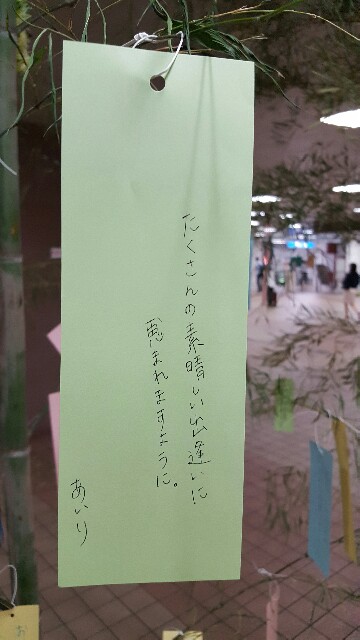 たくさんの素晴しい出逢いに
恵まれますように。
あいり
お